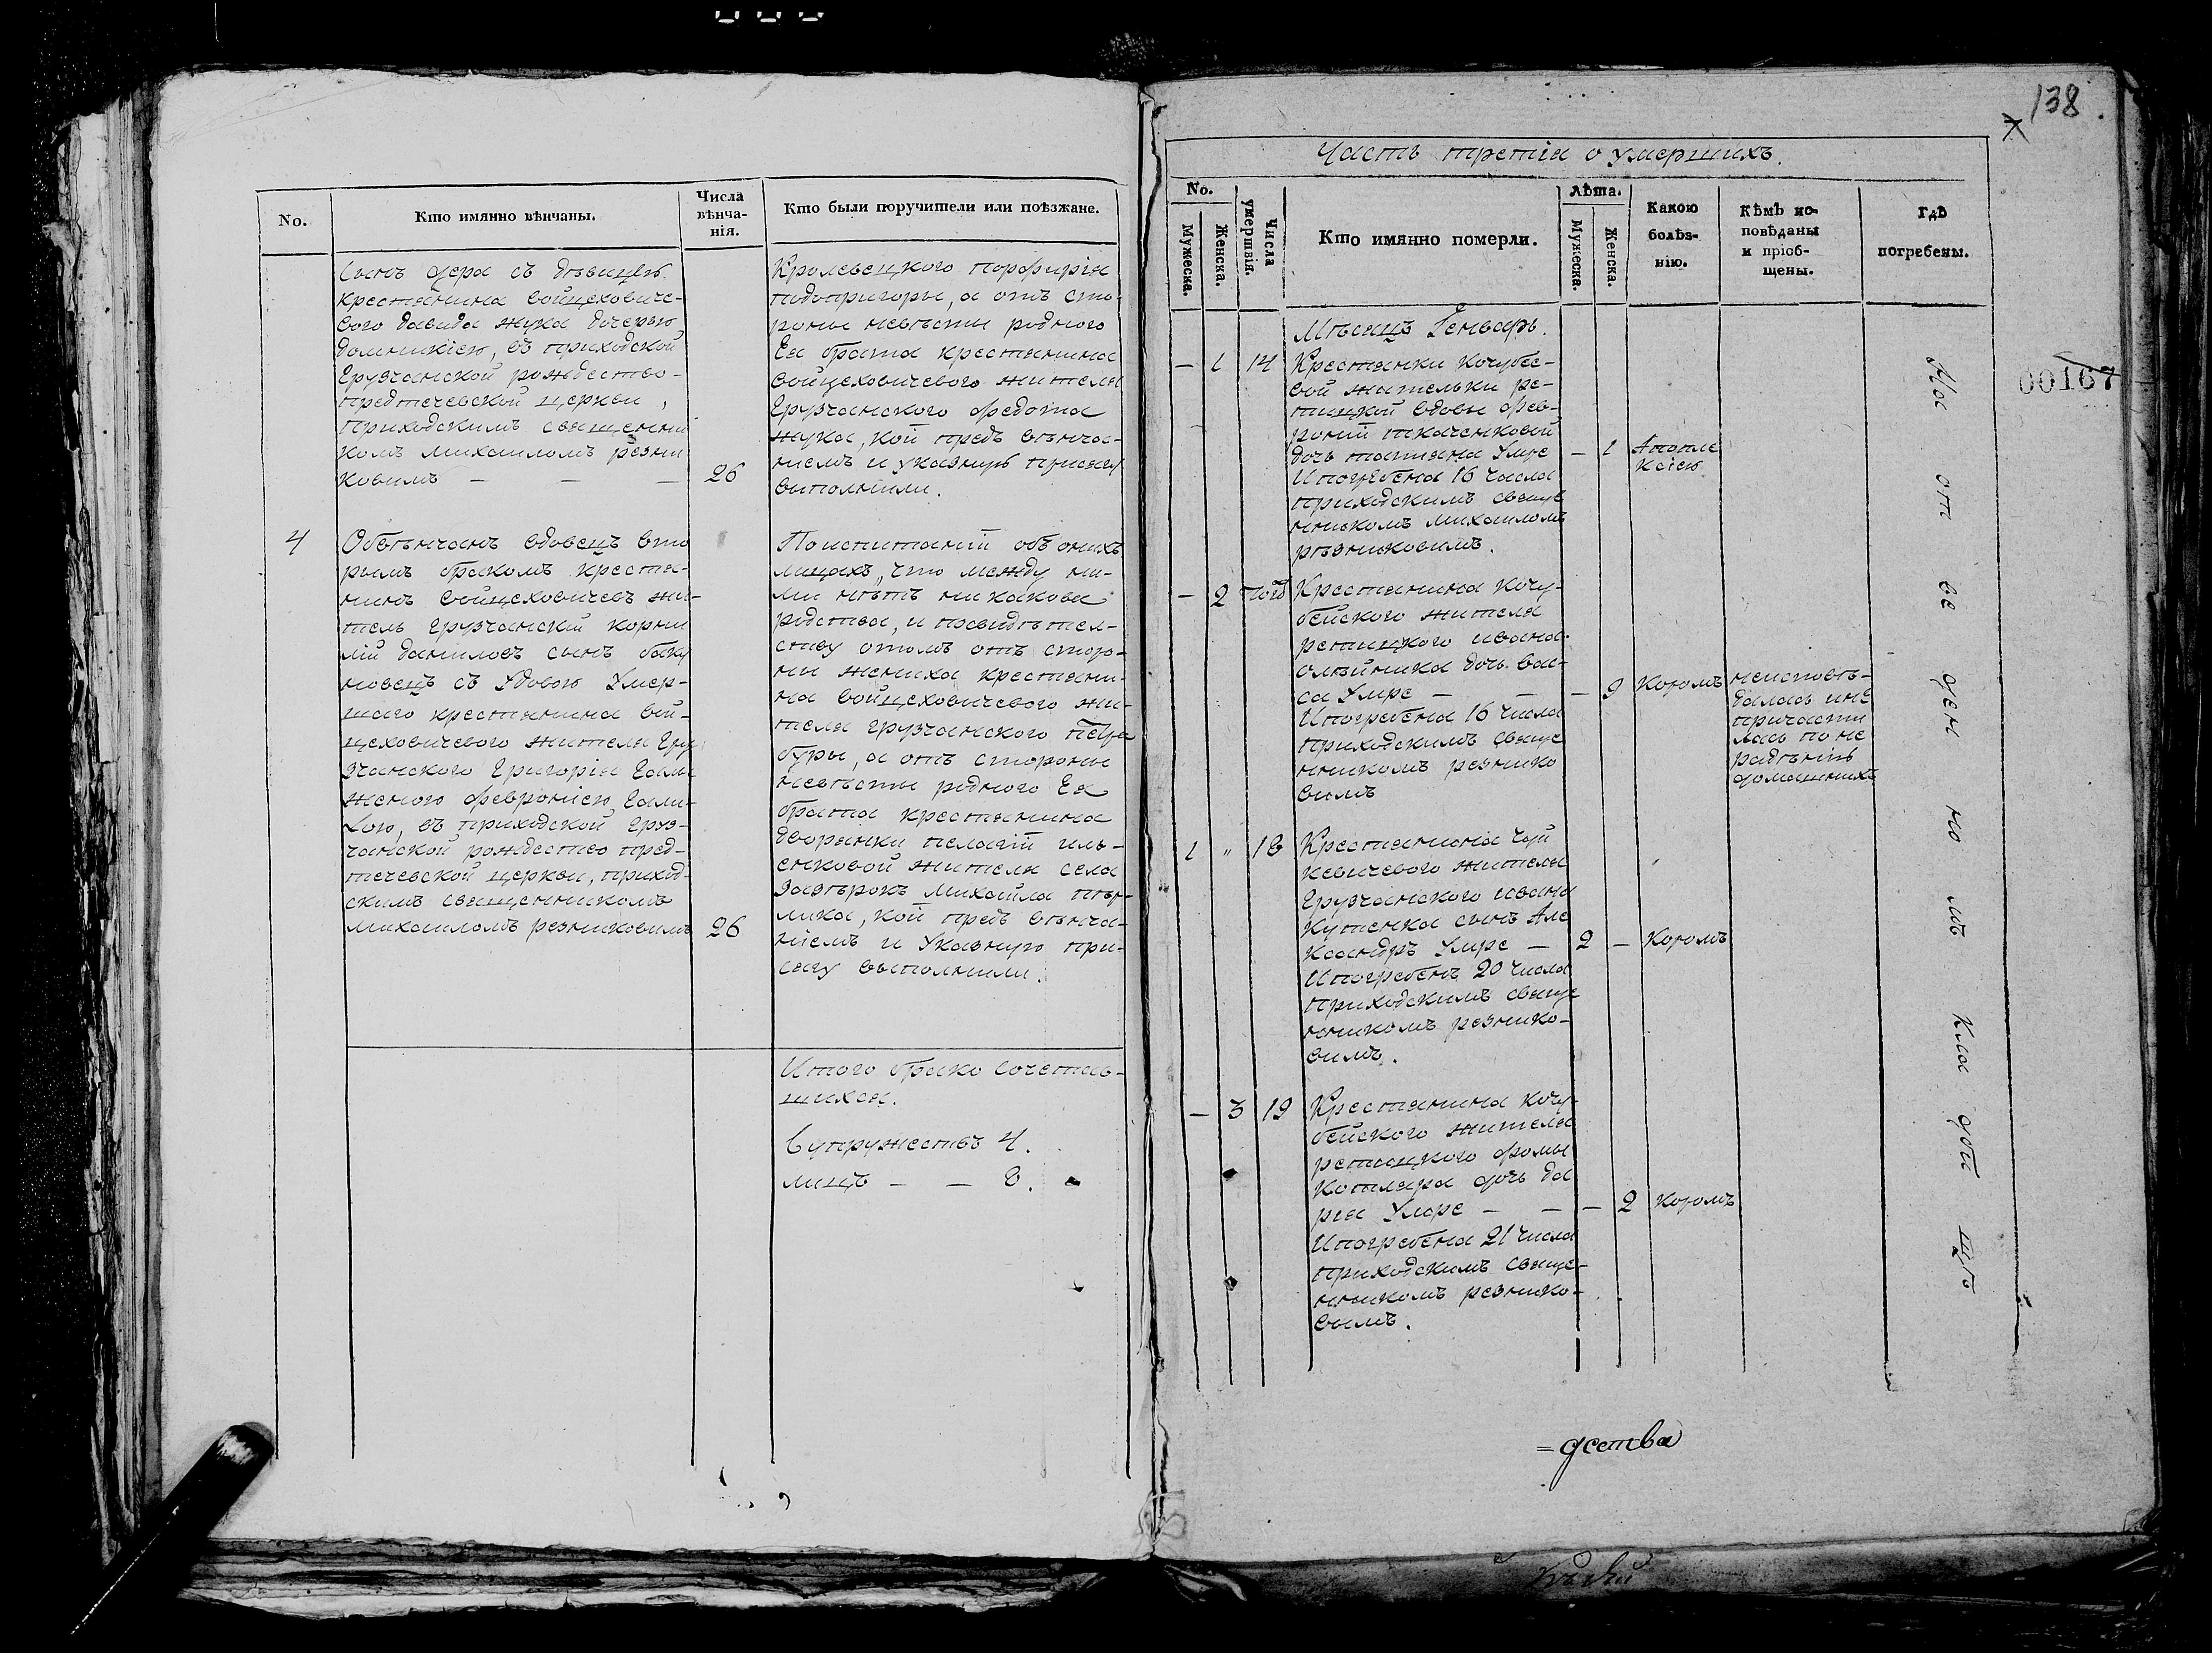 No.
Кто имянно вѣнчаны.
Числа
вѣнча-
нія.
Кто были поручители или поѣзжане.
крестянина войцеховиче-
вого давида жука дочерью
домникіею, въ приходской
Грузчанской рождество-
предтечевской церкви,
приходскимъ священни
комъ михаиломъ резни
ковимъ — — —
26
Кролевецкого порфирія
подопригоры, а отъ сто-
роны невѣсты родного
Ея брата крестянина
войцеховичевого жителя
Грузчанского федота
жука, кой предъ вѣнча-
ніемъ и указную присягу
выполнили.
4
Обвѣнчанъ вдовецъ вто
рымъ бракомъ крестя-
нинъ войцеховичевъ жи-
тель грузчанскій корни
лій даниловъ сынъ
съ удовою Умер-
шаго крестянина вой-
цеховичевого жителя Гру
зчанского Григорія
февроніею
въ приходской груз-
чанской рождество пред-
течевской церкви, приход-
скимъ священникомъ
михаиломъ резниковимъ
26
По испитаній объ онихъ
лицахъ, что между ни-
ми нѣтъ никакова
родства, и по свидѣтел-
ству отомъ отъ сторо-
ны жениха крестяни-
на войцеховичевого жи-
теля грузчанского петра
буры, а отъ стороны
невѣсты родного Ея
брата крестянина
дворянки пелагій иль-
енковой жителя села
михайла
кой предъ вѣнча-
ніемъ и Указную при-
сягу выполнили.
Итого брако сочетав-
шихся.
Супружествъ 4.
лицъ — — 8.
138
Часть третія о умершихъ.
No.
Мужеска.
Женска.
Числа
умершвія.
Кто имянно померли.
Лѣта.
Мужеска.
Женска.
Какою
болѣз-
нію.
Кѣмъ ис-
повѣданы
и пріоб-
щены.
Гдѣ
погребены.
00167
Мѣсяцъ Генварь.
— 1 14
Крестянки Кочубее-
вой жительки ре-
тицкой вдовы фев-
роній ткаченковой
дочь татіяна Умре — 1 Апопле
ксіею
И погребена 16 числа
приходскимъ свяще
нникомъ михаиломъ
рѣзниковимъ.
— 2 тогожъ
Крестянина кочу-
бейского жителя
ретицкого ивана
олѣйника дочь вас-
са Умре — — — 9 Коромъ
И погребена 16 числа
приходскимъ свяще
нникомъ резнико
вимъ
неисповѣ-
далась и не
причасти
лась по не
радѣнію
домашнихъ
1 " 18
Крестянина
кевичевого жителя
Грузчанского ивана
Кутенка сынъ Але
ксандръ Умре — 2 — Коромъ
И погребенъ 20 числа
приходскимъ свяще
нникомъ резнико-
вимъ.
— 3 19
Крестянина кочу-
бейского жителя
ретицкого фомы
Котляра дочь да
рія Умре — — — 2 Коромъ
И погребена 21 числа
приходскимъ свяще-
нникомъ резнико-
вимъ.
На от ве ден но мъ кла дби щѣ
=дства